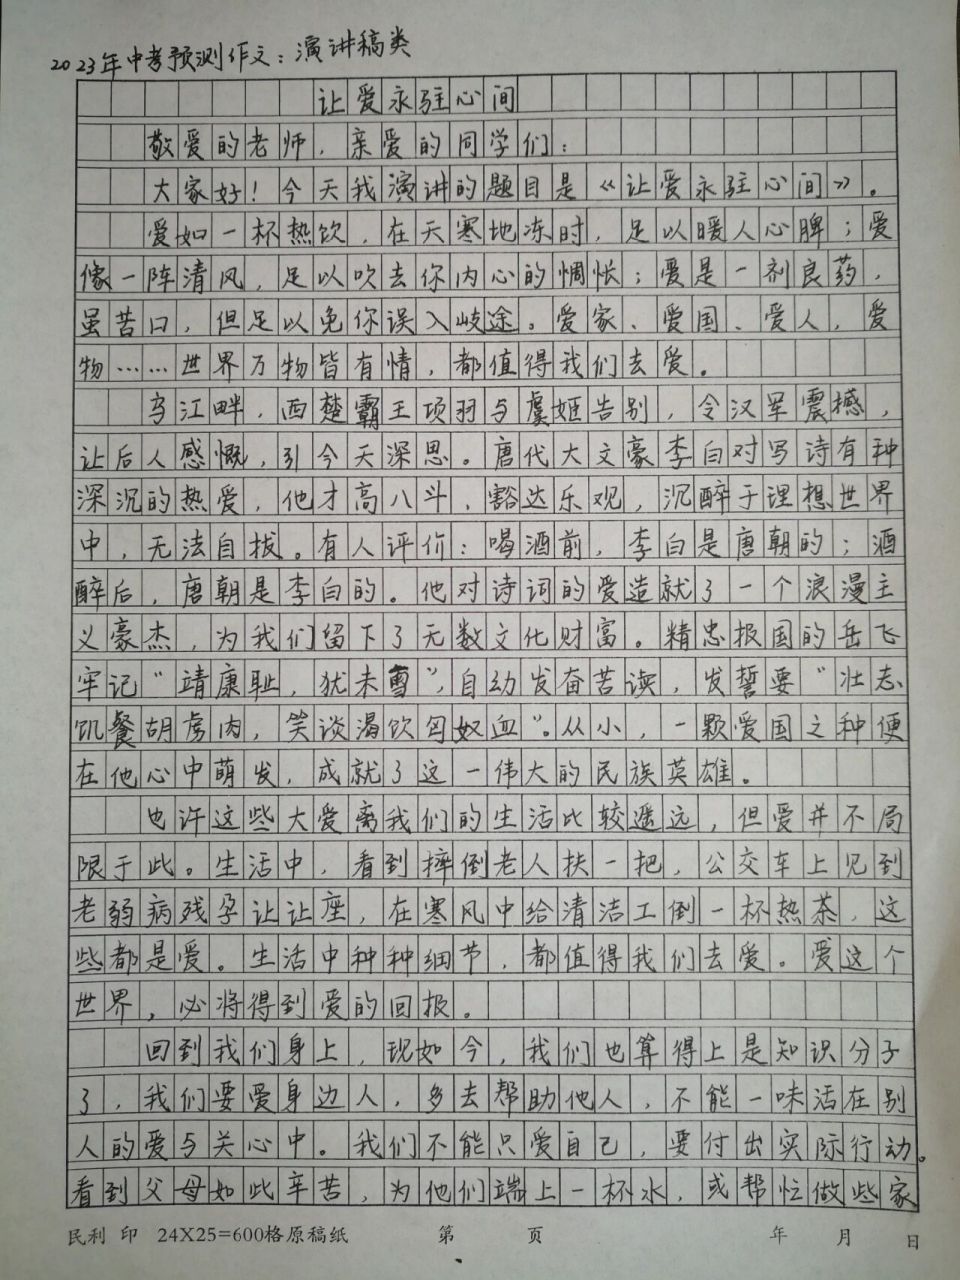 2023年中考预测作文：演讲稿类
让爱永驻心间
敬爱的老师，亲爱的同学们：
大家好！今天我演讲的题目是《让爱永驻心间》。
爱如一杯热饮，在天寒地冻时，足以暖人心脾；爱
像一阵清风，足以吹去你内心的惆怅；爱是一剂良药，
虽苦口，但足以免你误入岐途。爱家、爱国、爱人，爱
物……世界万物皆有情，都值得我们去爱。
乌江畔，西楚霸王项羽与虞姬告别，令汉军震撼，
让后人感慨，引今天深思。唐代大文豪李白对写诗有种
深沉的热爱，他才高八斗，豁达乐观，沉醉于理想世界
中，无法自拔。有人评价：喝酒前，李白是唐朝的；酒
醉后，唐朝是李白的。他对诗词的爱造就了一个浪漫主
义豪杰，为我们留下了无数文化财富。精忠报国的岳飞
牢记“靖康耻，犹未雪”，自动发奋苦读，发誓要“壮志
饥餐胡虏肉，笑谈渴饮匈奴血”。从小，一颗爱国之种便
在他心中萌发，成就了这一伟大的民族英雄。
也许这些大爱离我们的生活比较遥远，但爱并不局
限于此。生活中，看到摔倒老人扶一把，公交车上见到
老弱病残孕让让座，在寒风中给清洁工倒一杯热茶，这
些都是爱。生活中种种细节，都值得我们去爱。爱这个
世界，必将得到爱的回报。
回到我们身上，现如今，我们也算得上是知识分子
了，我们要爱身边人，多去帮助他人，不能一味活在别
人的爱与关心中。我们不能只爱自己，要付出实际行动。
看到父母如此辛苦，为他们端上一杯水，或帮忙做些家
民利 印 24X25=600格原稿纸 第 页 年 月 日